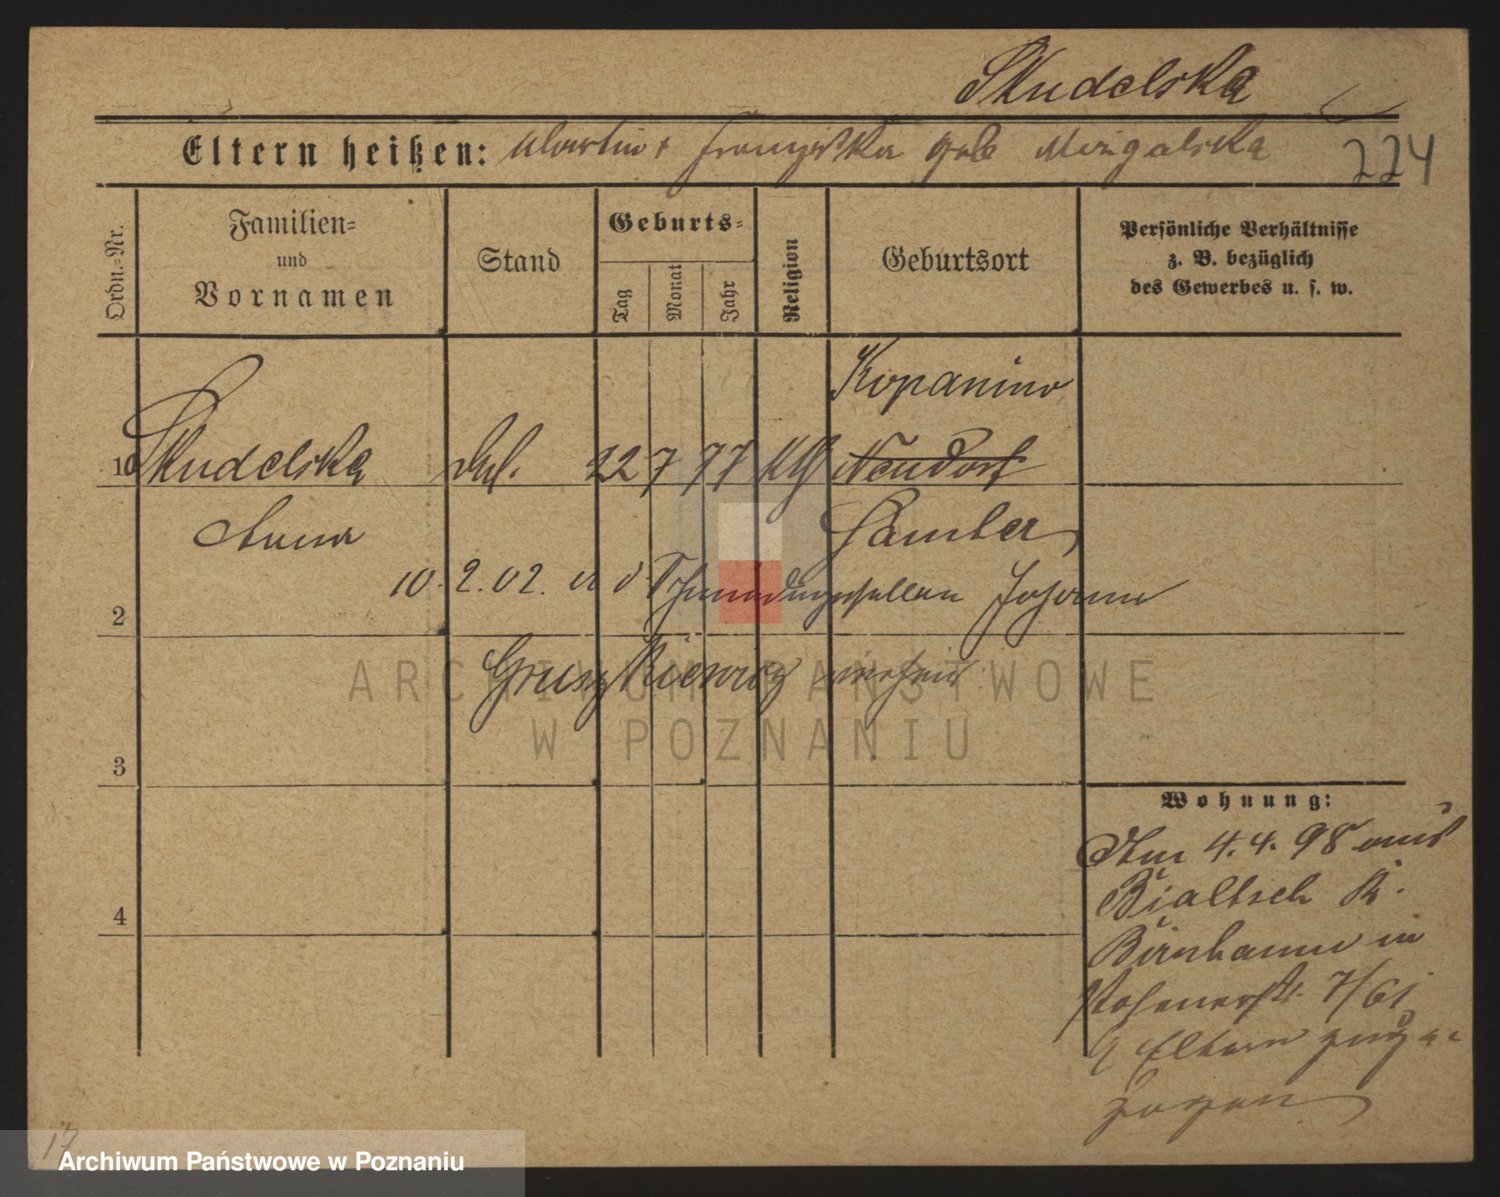 Skudelska
224
Eltern heißen: Martin u Franziska geb Mizgalska
Ordn.=Nr.
Familien=
und
Vornamen
Stand
Geburts=
Tag
Monat
Jahr
Religion
Geburtsort
Persönliche Verhältnisse
z. B. bezüglich
des Gewerbes u. s. w.
Kopanino
1 Skudelska 22 7 77 Kth Neudorf
Anna Samter
10. 2. 02. d. Schmiedegesellen Johann
2
Gruszkiewicz verehel.
3
4
Wohnung:
Am 4.4.98 aus
Bialtsch K.
Birnbaum in
Posenerstr. 7/61
Eltern
zogen
17
ARCHIWUM PAŃSTWOWE
W POZNANIU
Archiwum Państwowe w Poznaniu